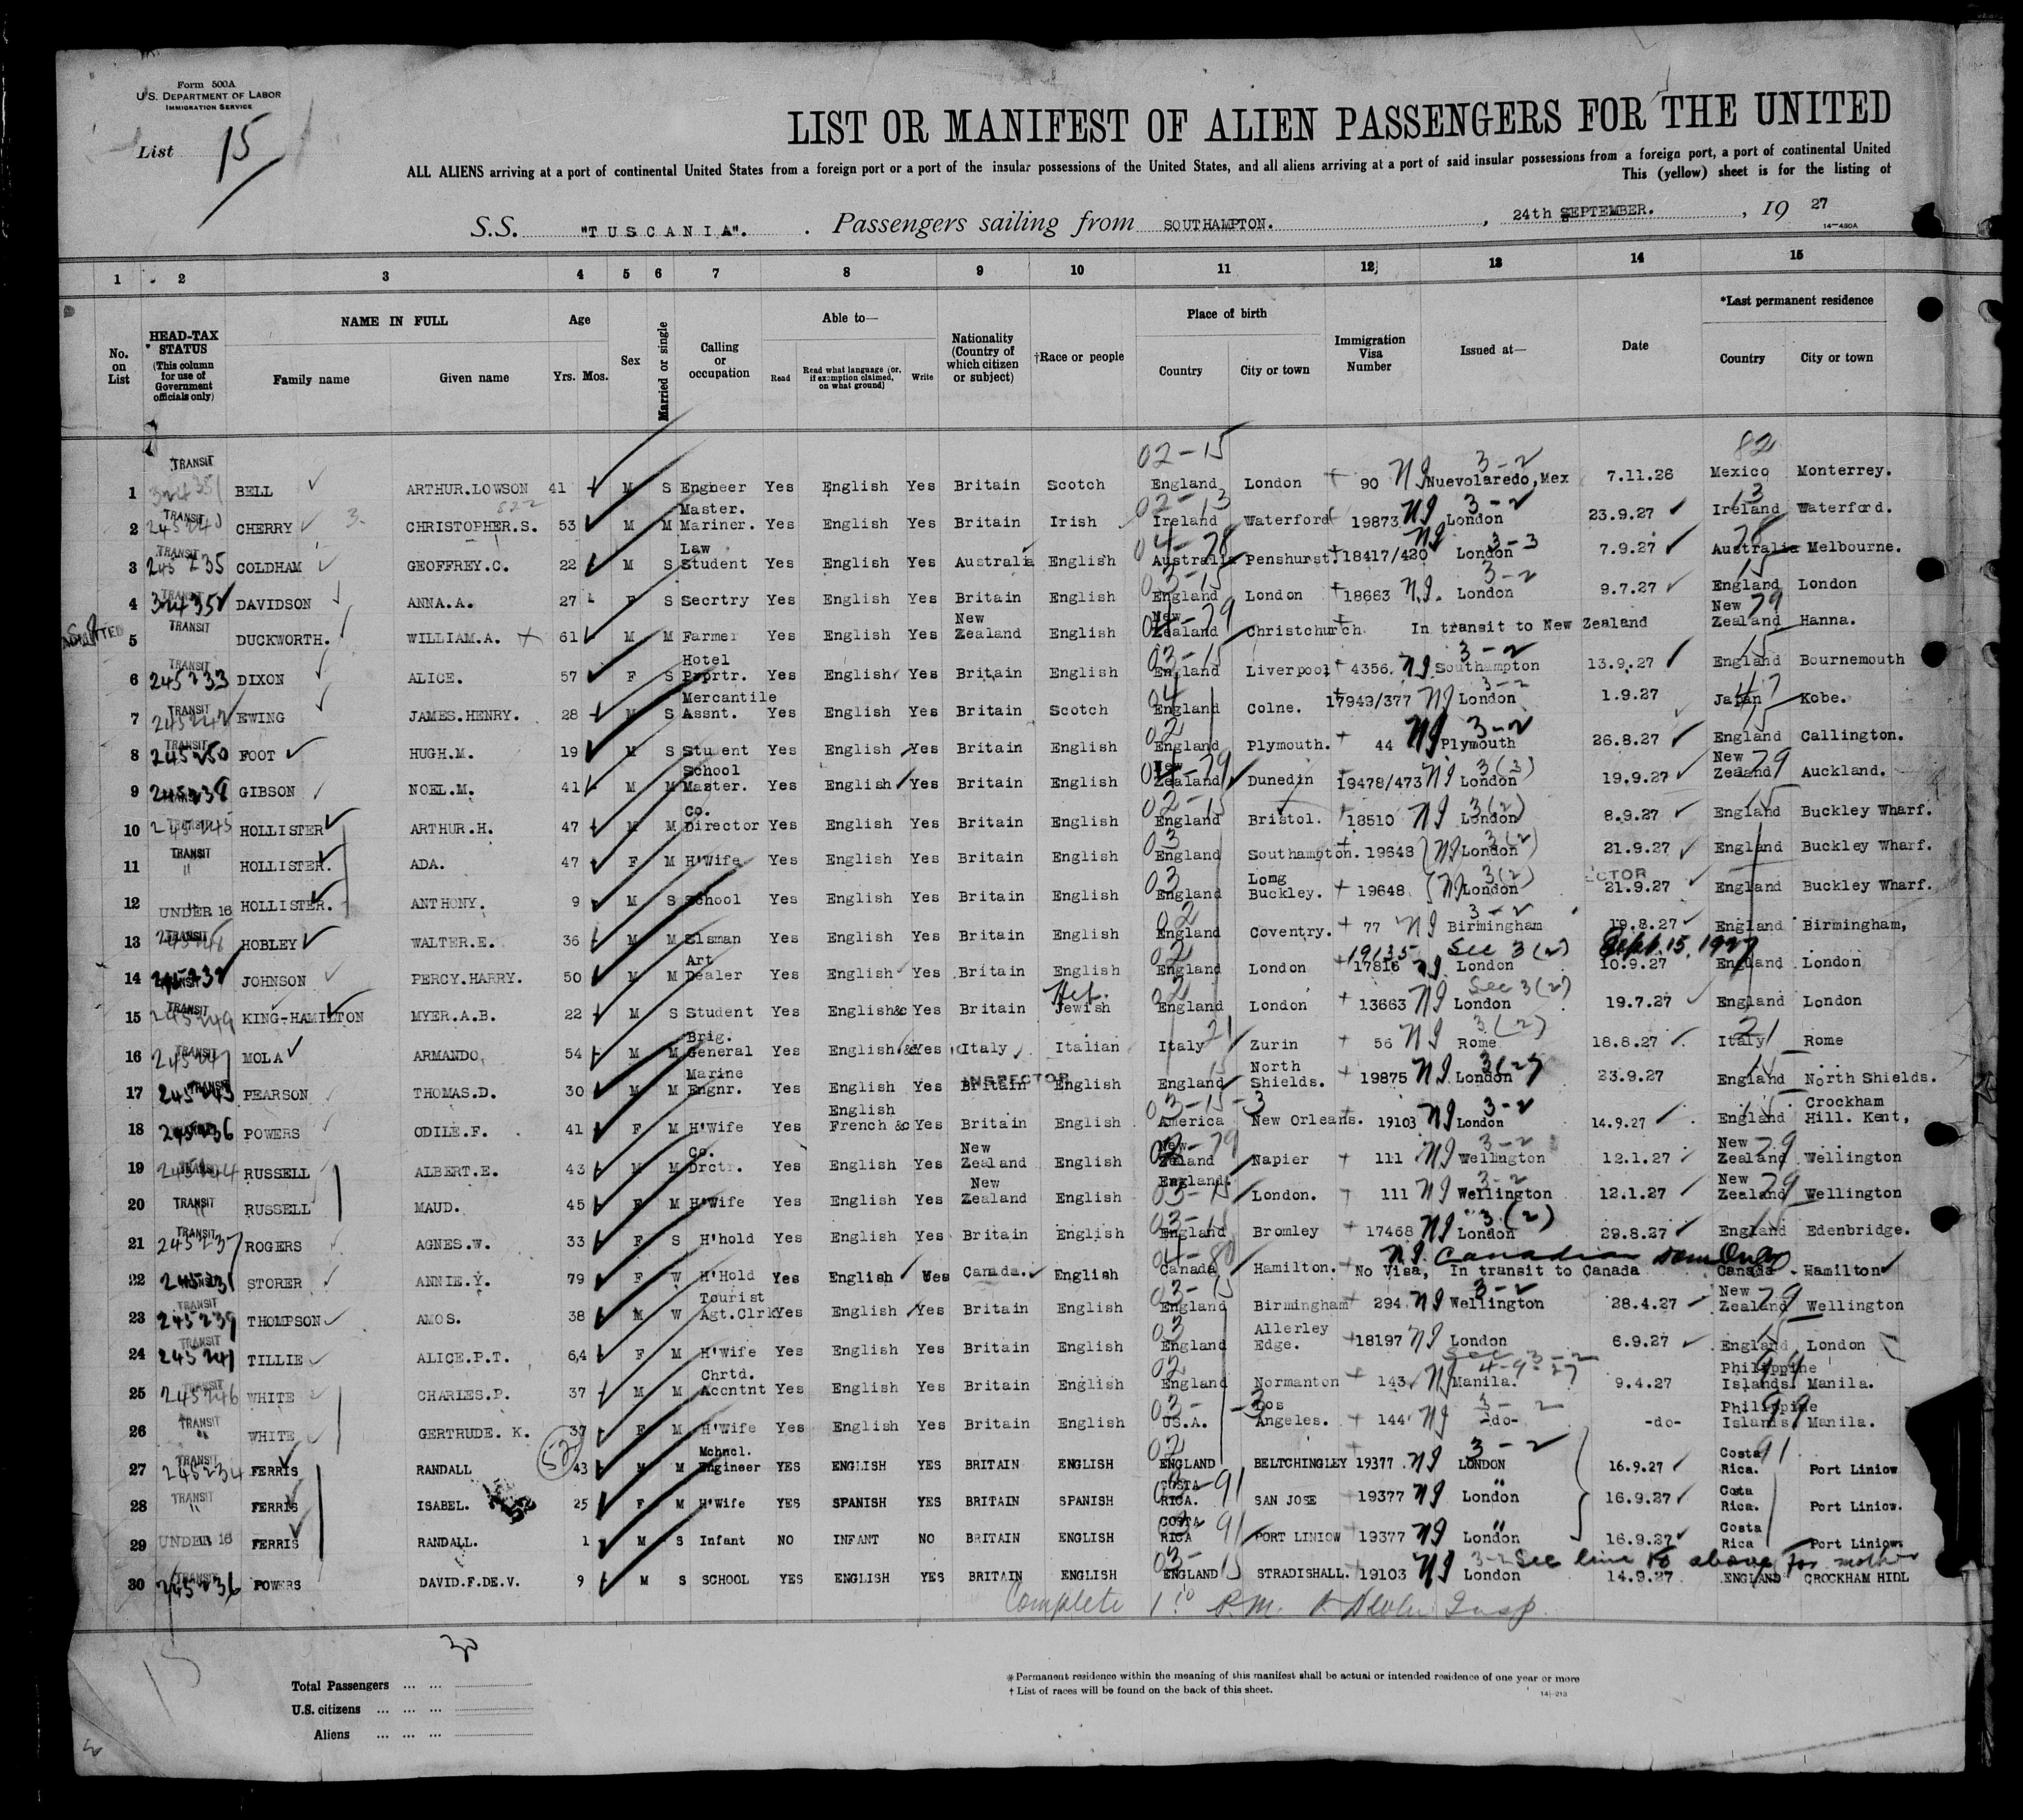 Form 500A
U.S. DEPARTMENT OF LABOR
IMMIGRATION SERVICE
List 15
LIST OR MANIFEST OF ALIEN PASSENGERS FOR THE UNITED
ALL ALIENS arriving at a port of continental United States from a foreign port or a port of the insular possessions of the United States, and all aliens arriving at a port of said insular possessions from a foreign port, a port of continental United
This (yellow) sheet is for the listing of
S.S. "TUSCANIA". Passengers sailing from SOUTHAMPTON. , 24th SEPTEMBER. , 19 27
14—430A
1 2 3 4 5 6 7 8 9 10 11 12 13 14 15
No. on List
HEAD-TAX STATUS (This column for use of Government officials only)
NAME IN FULL
Family name Given name
Age
Yrs. Mos.
Sex
Married or single
Calling or occupation
Able to—
Read
Read what language (or, if exemption claimed, on what ground)
Write
Nationality (Country of which citizen or subject)
†Race or people
Place of birth
Country City or town
Immigration Visa Number
Issued at—
Date
*Last permanent residence
Country City or town
02-15 3-2 82
1 TRANSIT BELL ARTHUR.LOWSON 41 M S Engneer Yes English Yes Britain Scotch England London 90 NJ Nuevolaredo,Mex 7.11.26 Mexico Monterrey.
2 TRANSIT CHERRY CHRISTOPHER.S. 53 M M Master. Mariner. Yes English Yes Britain Irish Ireland Waterford 19873 NJ London 3-2 23.9.27 Ireland Waterford.
3 TRANSIT 245235 COLDHAM GEOFFREY.C. 22 M S Law Student Yes English Yes Australia English Australia Penshurst. 18417/420 NJ London 3-3 7.9.27 Australia Melbourne.
4 TRANSIT DAVIDSON ANNA.A. 27 F S Secrtry Yes English Yes Britain English England London 18663 N.J. London 3-2 9.7.27 England London
5 ADMITTED TRANSIT DUCKWORTH. WILLIAM.A. 61 M M Farmer Yes English Yes New Zealand English New Zealand Christchurch In transit to New Zealand New Zealand Hanna.
6 TRANSIT 245233 DIXON ALICE. 57 F S Hotel Prprtr. Yes English Yes Britain English England Liverpool 4356. NJ Southampton 3-2 13.9.27 England Bournemouth
7 TRANSIT 245242 EWING JAMES.HENRY. 28 M S Mercantile Assnt. Yes English Yes Britain Scotch England Colne. 17949/377 NJ London 3-2 1.9.27 Japan Kobe.
8 TRANSIT 245250 FOOT HUGH.M. 19 M S Student Yes English Yes Britain English England Plymouth. 44 NJ Plymouth 3-2 26.8.27 England Callington.
9 TRANSIT 245238 GIBSON NOEL.M. 41 M M School Master. Yes English Yes Britain English New Zealand Dunedin 19478/473 NJ London 3(3) 19.9.27 New Zealand Auckland.
10 TRANSIT 245245 HOLLISTER ARTHUR.H. 47 M M Co. Director Yes English Yes Britain English England Bristol. 18510 NJ London 3(2) 8.9.27 England Buckley Wharf.
11 TRANSIT " HOLLISTER. ADA. 47 F M H'Wife Yes English Yes Britain English England Southampton. 19648 NJ London 3(2) 21.9.27 England Buckley Wharf.
12 UNDER 16 HOLLISTER. ANTHONY. 9 M S School Yes English Yes Britain English England Long Buckley. 19648 NJ London 3(2) 21.9.27 England Buckley Wharf.
13 TRANSIT HOBLEY WALTER.E. 36 M M Slsman Yes English Yes Britain English England Coventry. 77 NJ Birmingham 3-2 19.8.27 England Birmingham,
19135 Sec 3(2) Sept. 15, 1927
14 245232 JOHNSON PERCY.HARRY. 50 M M Art Dealer Yes English Yes Britain English England London 17816 NJ London 10.9.27 England London
15 TRANSIT 245249 KING-HAMILTON MYER.A.B. 22 M S Student Yes English&c Yes Britain Heb. Jewish England London 13663 NJ London Sec 3(2) 19.7.27 England London
16 TRANSIT 245247 MOLA ARMANDO 54 M M Brig. General Yes English &c Yes Italy Italian Italy Zurin 56 NJ Rome 3(2) 18.8.27 Italy Rome
INSPECTOR
17 TRANSIT 245243 PEARSON THOMAS.D. 30 M M Marine Engnr. Yes English Yes Britain English England North Shields. 19875 NJ London 3(2) 23.9.27 England North Shields.
18 245236 POWERS ODILE.F. 41 F M H'Wife Yes English French &c Yes Britain English America New Orleans. 19103 NJ London 3-2 14.9.27 England Crockham Hill. Kent,
19 245244 RUSSELL ALBERT.E. 43 M M Co. Drctr. Yes English Yes New Zealand English New Zeland Napier 111 NJ Wellington 3-2 12.1.27 New Zealand Wellington
20 TRANSIT " RUSSELL MAUD. 45 F M H'Wife Yes English Yes New Zealand English England. London. 111 NJ Wellington 3-2 12.1.27 New Zealand Wellington
21 TRANSIT 245237 ROGERS AGNES.W. 33 F S H'hold Yes English Yes Britain English England Bromley 17468 NJ London 3(2) 29.8.27 England Edenbridge.
22 245231 STORER ANNIE.Y. 79 F W H'Hold Yes English Yes Canada. English Canada Hamilton. No Visa, NJ Canadian In transit to Canada Canada Hamilton
23 TRANSIT 245239 THOMPSON AMOS. 38 M W Tourist Agt.Clrk Yes English Yes Britain English England Birmingham 294 NJ Wellington 3-2 28.4.27 New Zealand Wellington
24 TRANSIT 245241 TILLIE ALICE.P.T. 64 F M H'Wife Yes English Yes Britain English England Allerley Edge. 18197 NJ London 6.9.27 England London
25 TRANSIT 245246 WHITE CHARLES.P. 37 M M Chrtd. Accntnt Yes English Yes Britain English England Normanton 143 NJ Manila. 9.4.27 Philippine Islands. Manila.
26 TRANSIT " WHITE GERTRUDE. K. 37 F M H'Wife Yes English Yes Britain English U.S.A. Los Angeles. 144 NJ -do- -do- Philippine Islands Manila.
27 TRANSIT 245234 FERRIS RANDALL 52 43 M M Mchncl. Engineer YES ENGLISH YES BRITAIN ENGLISH ENGLAND BELTCHINGLEY 19377 NJ LONDON 3-2 16.9.27 Costa Rica. Port Liniow
28 TRANSIT " FERRIS ISABEL. 25 F M H'Wife YES SPANISH YES BRITAIN SPANISH COSTA RICA. SAN JOSE 19377 NJ London " 16.9.27 Costa Rica. Port Liniow.
29 UNDER 16 FERRIS RANDALL. 1 M S Infant NO INFANT NO BRITAIN ENGLISH COSTA RICA PORT LINIOW 19377 NJ London " 16.9.27 Costa Rica Port Liniow.
3-2 See line 18 above for mother
30 TRANSIT 245236 POWERS DAVID.F.DE.V. 9 M S SCHOOL YES ENGLISH YES BRITAIN ENGLISH ENGLAND STRADISHALL. 19103 NJ London 14.9.27 ENGLAND CROCKHAM HIDL
Complete 1 10 P.M. Insp.
30
15
Total Passengers ... ...
U.S. citizens ... ... ...
Aliens ... ... ...
* Permanent residence within the meaning of this manifest shall be actual or intended residence of one year or more
† List of races will be found on the back of this sheet.
14—213